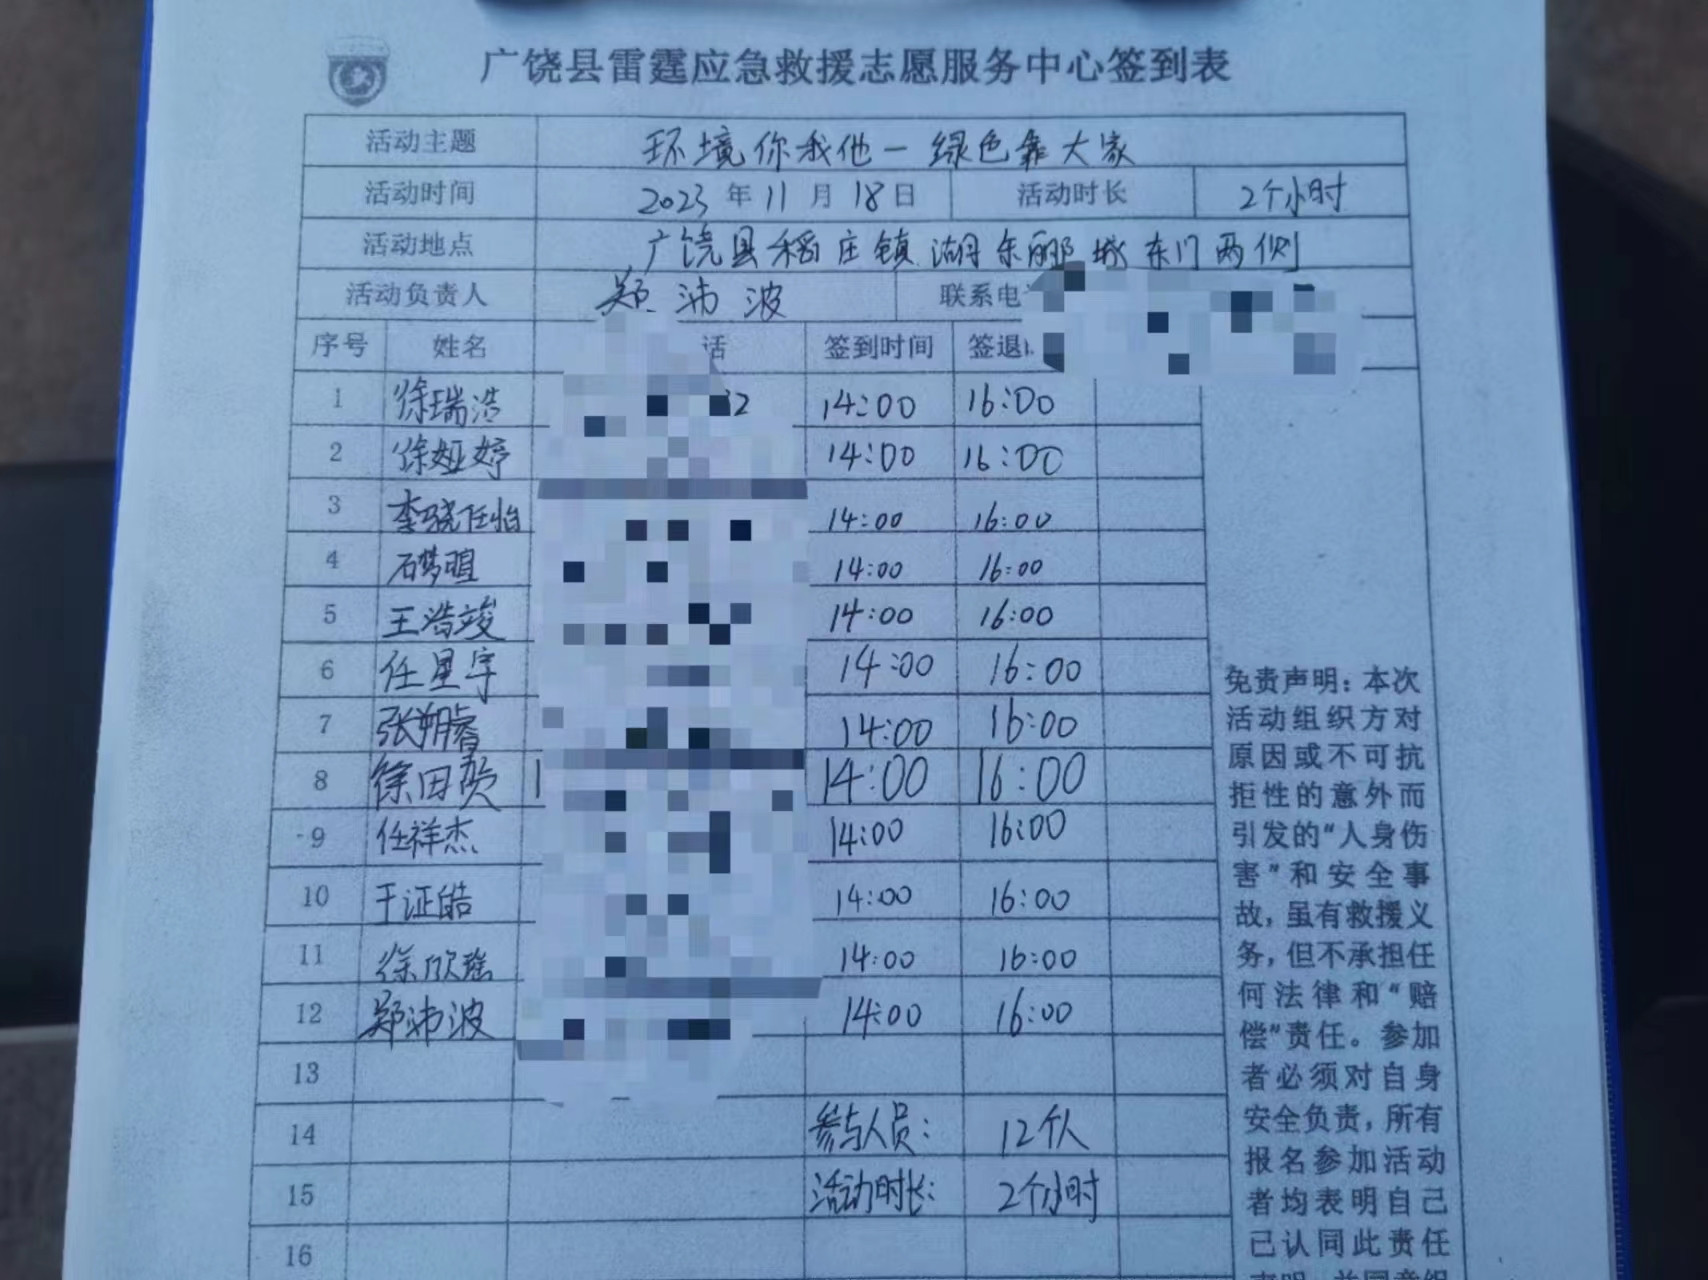 广饶县雷霆应急救援志愿服务中心签到表
活动主题 环境你我他一绿色靠大家
活动时间 2023年11月18日 活动时长 2个小时
活动地点 广饶县稻庄镇湖东郦城东门两侧
活动负责人 郑沛波 联系电
序号 姓名 话 签到时间 签退
1 徐瑞浩 14:00 16:00
2 徐娅婷 14:00 16:00
3 李骁任怡 14:00 16:00
4 石梦暄 14:00 16:00
5 王浩竣 14:00 16:00
6 任星宇 14:00 16:00
7 张朔睿 14:00 16:00
8 徐田 14:00 16:00
9 任祥杰 14:00 16:00
10 于证皓 14:00 16:00
11 徐欣瑶 14:00 16:00
12 郑沛波 14:00 16:00
13
14 参与人员: 12个人
15 活动时长: 2个小时
16
免责声明:本次
活动组织方对
原因或不可抗
拒性的意外而
引发的“人身伤
害”和安全事
故,虽有救援义
务,但不承担任
何法律和“赔
偿”责任。参加
者必须对自身
安全负责,所有
报名参加活动
者均表明自己
已认同此责任